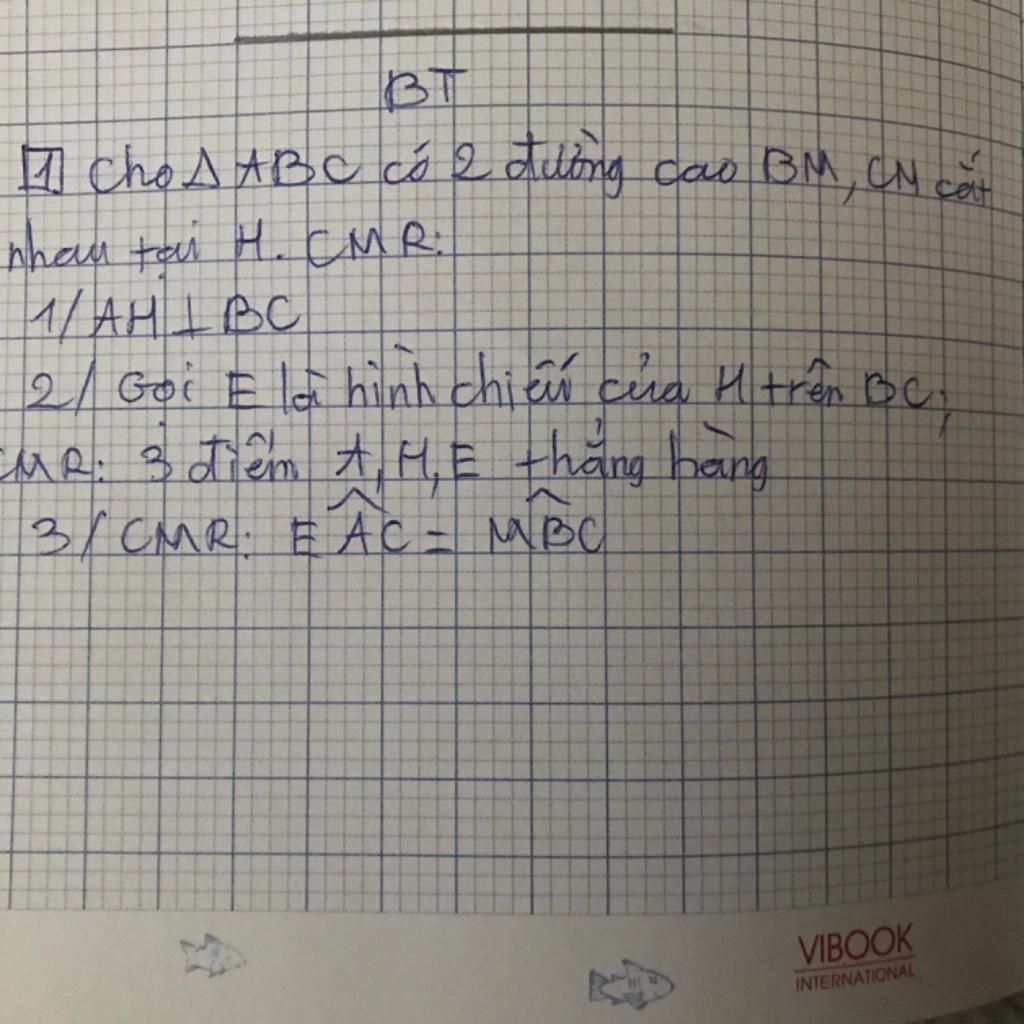 BT
1 Cho Δ ABC có 2 đường cao BM, CN cắt
nhau tại H. CMR:
1/ AH ⊥ BC
2/ Gọi E là hình chiếu của H trên BC;
CMR: 3 điểm A, H, E thẳng hàng
3/ CMR: EÂC = MB̂C
VIBOOK
INTERNATIONAL